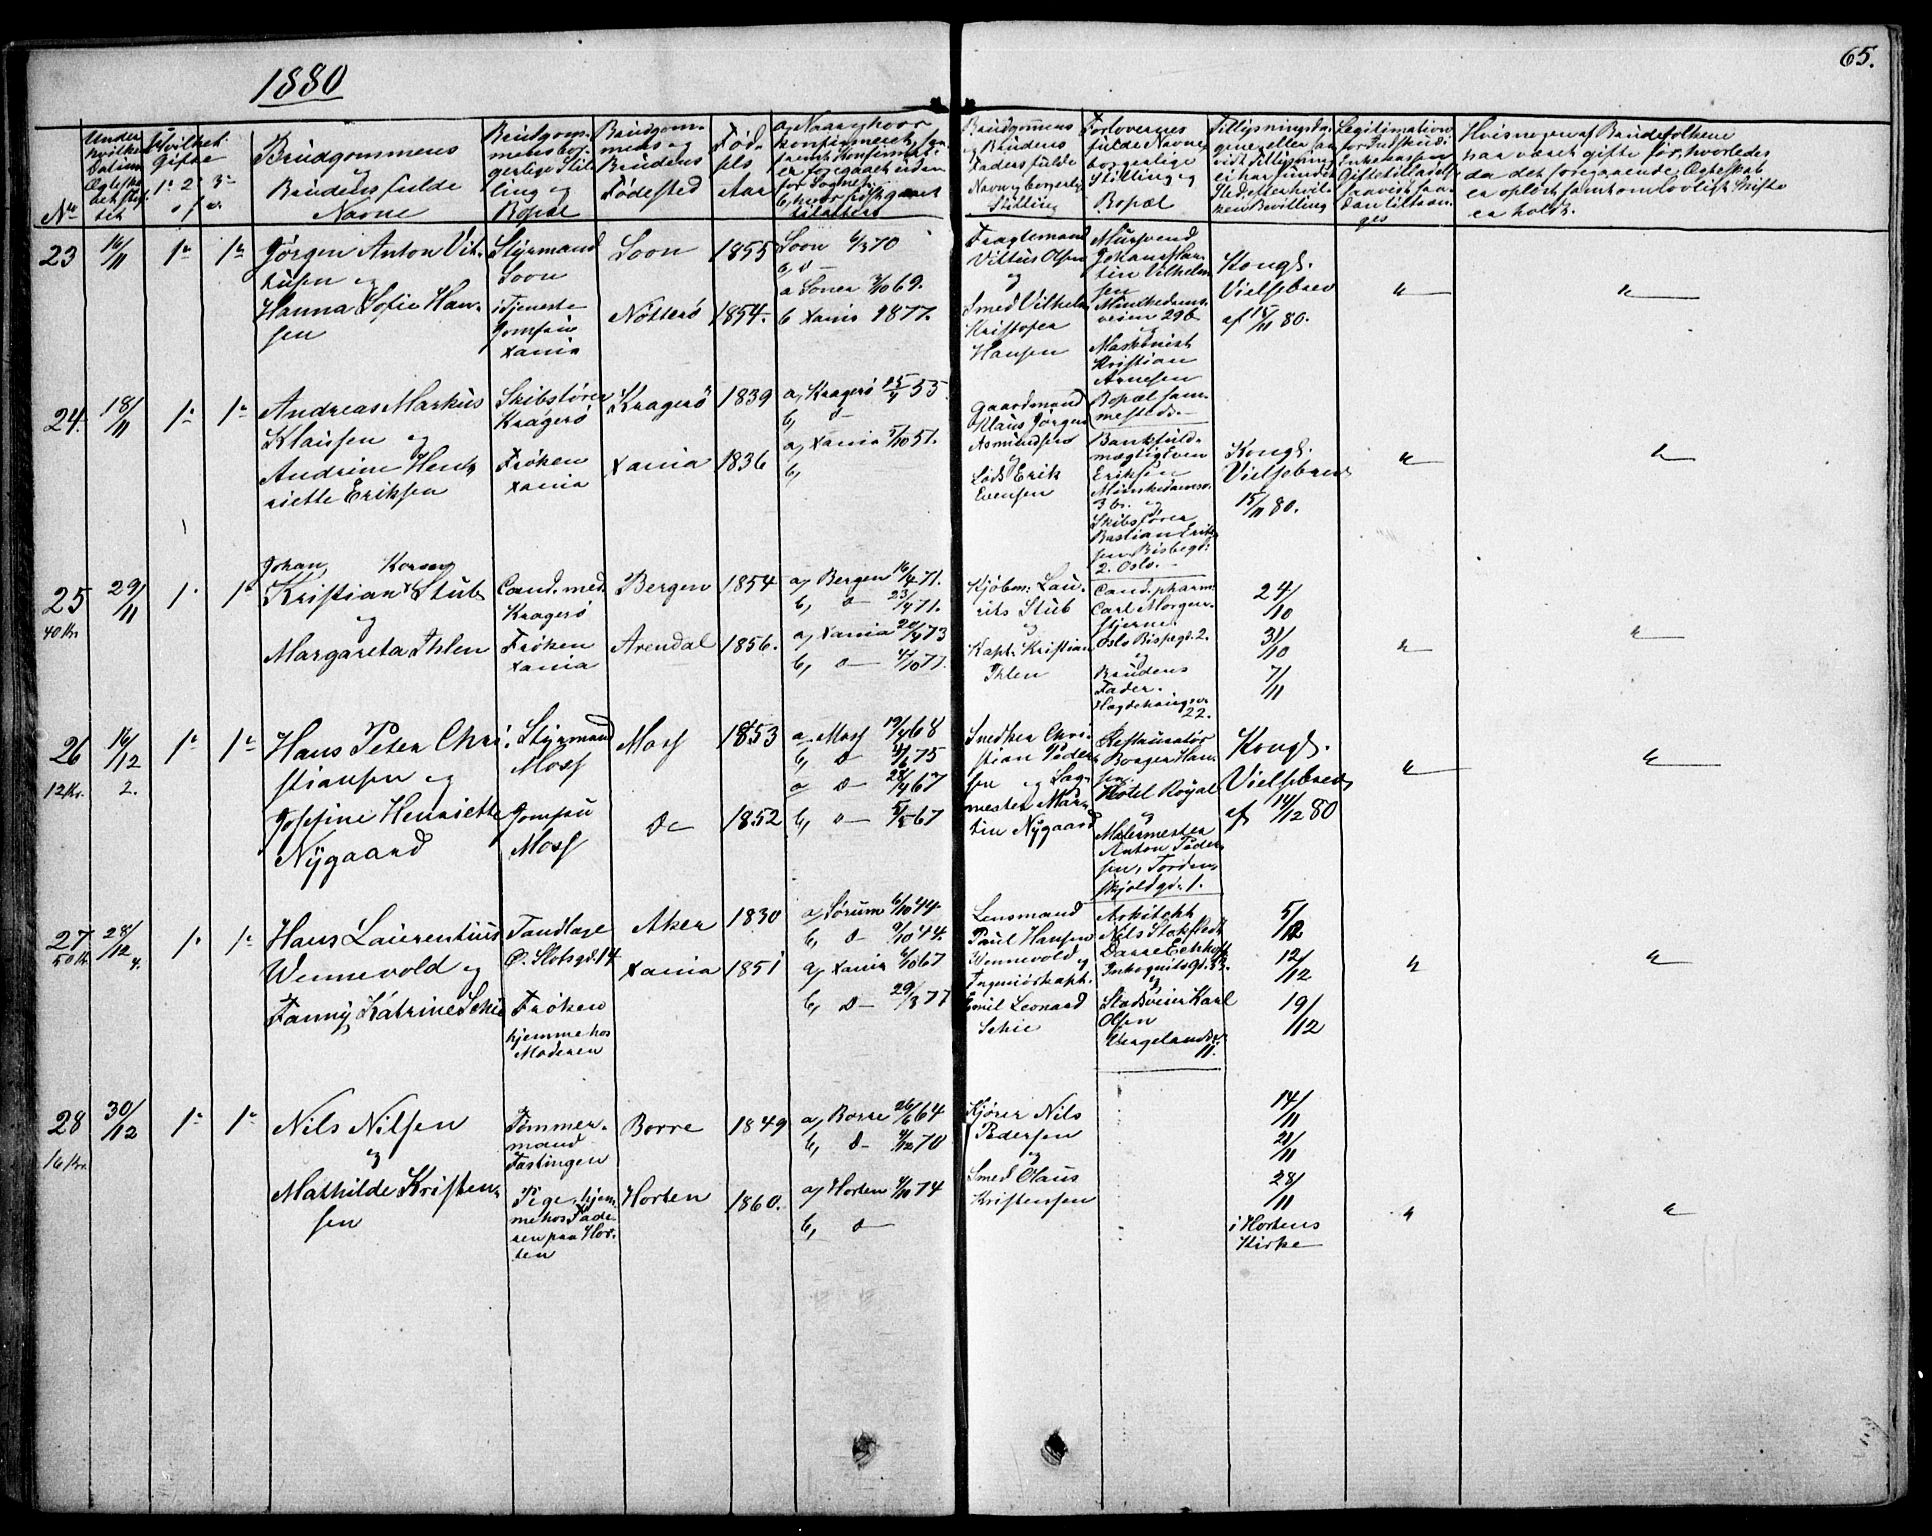 1880
65.
No
Under
hvilken
Datum
Ægteska-
bet stif-
tet
Hvilket
Gifte
1ste 2det 3die
Brudgommens
og
Brudens fulde
Navne
Brudgom-
mens bor-
gerlige Stil-
ling og
Bopæl
Brudgom-
mens og
Brudens
Fødested
Fød-
sels
Aar
a, Naar og hvor
konfirmeret,
Brudgommens
og Brudens
Faders fulde
Navn og borgerl.
Stilling
Forlovernes
fulde Navne
borgerlige
Stilling og
Bopæl
Tillysningsda-
gene, eller for-
vidt Tillysning
ei har fundet
Sted, efter hvil-
ken Bevilling
Legitimation
for Indskud i
Enkekassen
Hvis nogen af Brudefolkene
har været gifte før, hvorledes
da det foregaaende Ægteskab
er opløst samt om lovligt Skifte
er holdt.
23
16/11
1ste
1ste
Jørgen Anton Vit-
tusen og
Hanna Sofie Han-
sen
Styrmand
Soon
i Tjeneste
Jomfru
Xania
Soon
Nøtterø
1855
1854
Soon 6/3 70
b, d-
a Soner 3/10 69.
b Xania 1877.
Fragtemand
Vittus Olsen
og
Smed Vilhelm
Kristofer
Hansen
Mursvend
Johans Mar-
tin Vilhelm-
sen
Munkedams-
veien 29b
og
Maskinist
Kristian
Arnesen
Bopæl sam-
mesteds.
Kongl.
Vielsebrev
af 15/11 80.
"
"
24.
18/11
1ste
1ste
Andreas Markus
Klausen og
Andrine Hen-
riette Eriksen
Skibsfører
Kragerø
Frøken
Xania
Kragerø
Xania
1839
1836
a, Kragerø 15/4 55
b, d-
a, Xania 5/10 51.
b,
Gaardmand
Klaus Jørgen
Asmundsen
og
Lods Erik
Evensen
Bankfuld-
mægtig Even
Eriksen
Munkedamsv.
3b. og
Skibsfører
Bastian Erik-
sen Bispegd:
2. Oslo.
Kongl.
Vielsebrev
15/11 80.
"
"
25
40 Kr.
29/11
1.
1ste
Johan Koren
Kristian Stub
og
Margareta Ihlen
Cand. med.
Kragerø
Frøken
Xania
Bergen
Arendal
1854
1856.
a, Bergen 16/4 71.
b, d- 23/4 71.
a, Xania 20/4 73
b, d- 4/10 77.
Kjøbm: Lau-
rits Stub
og
Kapt. Kristian
Ihlen
Cand. pharm.
Carl Morgen-
stjerne.
Oslo Bispegd. 2.
og
Brudens
Fader.
Hægdehaugsv.
22.
24/10
31/10
7/11
"
"
26
12 Kr.
16/12
2.
1ste
1ste
Hans Peter Chri-
stiansen og
Josefine Henriette
Nygaard
Styrmand
Moss
Jomfru
Moss
Moss
do
1853
1852
a, Moss 19/4 68
b, d 75
a d- 28/4 67
b, d- 5/5 67
Snedker Chri-
stian Peder-
sen og Sag-
mester Mar-
tin Nygaard
Restauratør
Borger Han-
sen.
Hotel Royal
og
Malermester
Anton Peder-
sen, Torden-
skjoldgd. 1.
Kongl.
Vielsebrev
af 14/12 80
"
"
27
50 Kr.
28/12
4.
1.
1ste
Hans Laurentius
Wennevold og
Fanny Katrine Schie
Tandlæge
Ø. Slotsgd. 14
Frøken
hjemme hos
Moderen
Aker
Xania
1830
1851
a, Sørum 6/10 44.
b, d- 9/10 44.
a, Xania 6/10 67
b, d- 29/3 77
Lensmand
Paul Hansen
Wennevold og
Ingeniørkapt.
Emil Leonard
Schie
Arkitekt
Nils Stokstedt
Darre Eckhoff
Inkognitogd. 33.
og
Stadsveier Karl
Olsen
Vergelandsv.
11.
5/12
12/12
19/12
"
"
28
16 Kr.
30/12
1ste
1ste
Nils Nilsen
og
Mathilde Kristen-
sen
Tømmer-
mand
Fæstingen
Pige, hjem-
me hos Fade-
ren paa Hor-
ten
Borre
Horten
1849
1860.
a, Borre 26/6 64
b, d- 4/12 70
a, Horten 4/10 74
b, d-
Kjører Nils
Pedersen
og
Smed Olaus
Kristensen
14/11
21/11
28/11
i Hortens
Kirke
"
"